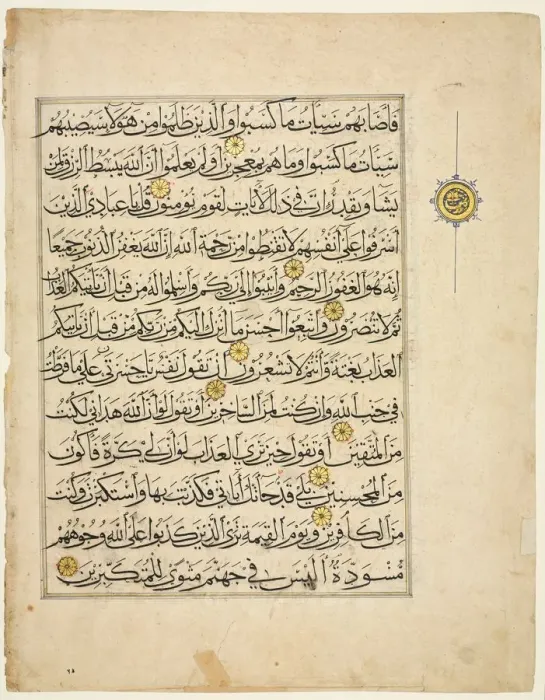 فأصابهم سيئات ما كسبوا والذين ظلموا من هؤلاء سيصيبهم
سيئات ما كسبوا وما هم بمعجزين أولم يعلموا أن الله يبسط الرزق لمن
يشاء ويقدر إن في ذلك لآيات لقوم يؤمنون قل يا عبادي الذين
أسرفوا على أنفسهم لا تقنطوا من رحمة الله إن الله يغفر الذنوب جميعا
إنه هو الغفور الرحيم وأنيبوا إلى ربكم وأسلموا له من قبل أن يأتيكم العذاب
ثم لا تنصرون واتبعوا أحسن ما أنزل إليكم من ربكم من قبل أن يأتيكم
العذاب بغتة وأنتم لا تشعرون أن تقول نفس يا حسرتى على ما فرطت
في جنب الله وإن كنت لمن الساخرين أو تقول لو أن الله هداني لكنت
من المتقين أو تقول حين ترى العذاب لو أن لي كرة فأكون
من المحسنين بلى قد جاءتك آياتي فكذبت بها واستكبرت وكنت
من الكافرين ويوم القيمة ترى الذين كذبوا على الله وجوههم
مسودة أليس في جهنم مثوى للمتكبرين